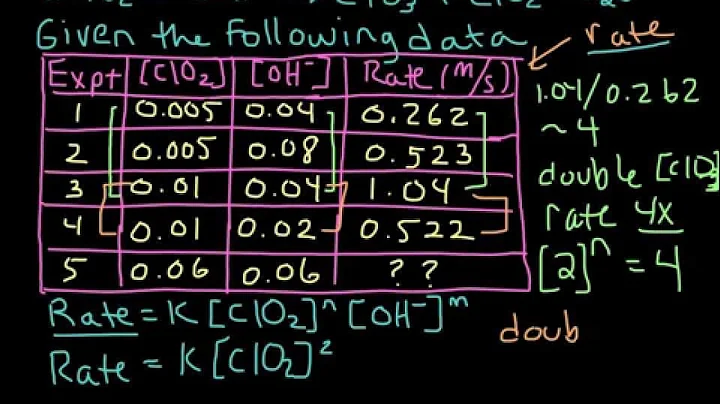 Given the following data
rate
Expt [ClO₂] [OH⁻] Rate (M/s)
1 0.005 0.04 0.262
2 0.005 0.08 0.523
3 0.01 0.04 1.04
4 0.01 0.02 0.522
5 0.06 0.06 ? ?
1.04/0.262
~ 4
double [ClO₂]
rate 4x
[2]ⁿ = 4
Rate = K[ClO₂]ⁿ[OH⁻]ᵐ
Rate = K[ClO₂]²
doub